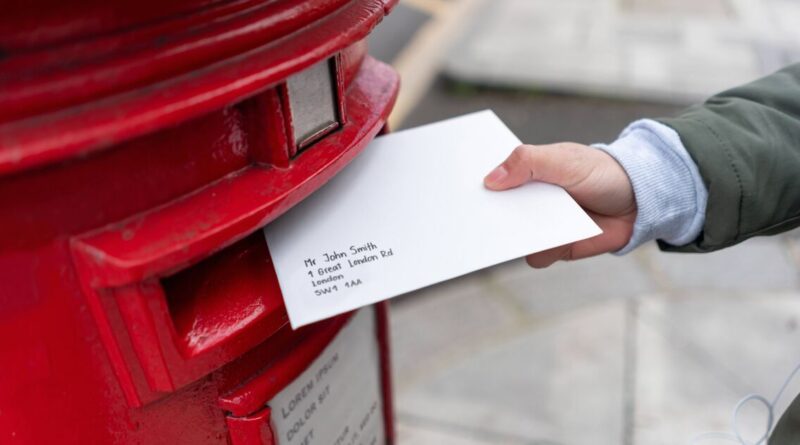 Mr John Smith
1 Great London Rd
London
SW1 1AA
LOREM IPSUM
DOLOR SIT